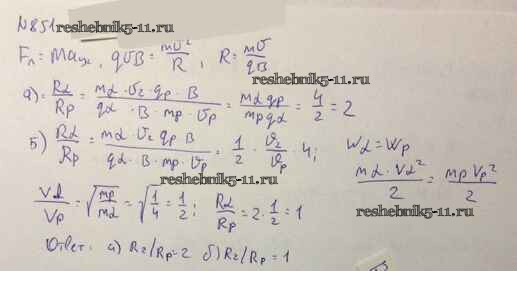 №851 reshebnik5-11.ru
Fл = maцс, qVB = mV²/R, R = mV/qB
reshebnik5-11.ru
а) = Rα/Rp = mα · Vα · qp · B / qα · B · mp · Vp = mα qp / mp qα = 4/2 = 2
б) Rα/Rp = mα · Vα qp B / qα · B · mp · Vp = 1/2 · Vα/Vp · 4; Wα = Wp
reshebnik5-11.ru
Vα/Vp = √mp/mα = √1/4 = 1/2; Rα/Rp = 2 · 1/2 = 1 mα · Vα²/2 = mp Vp²/2
reshebnik5-11.ru
Ответ: а) Rα/Rp = 2 б) Rα/Rp = 1